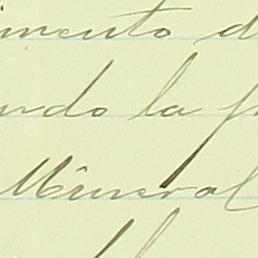 imento d
ndo la f
Mineral